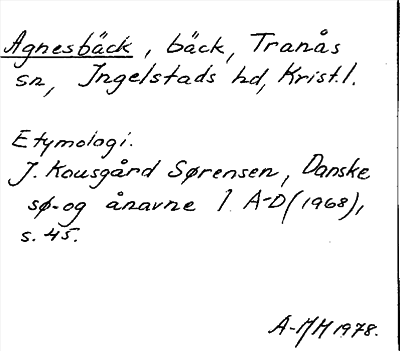 Agnesbäck, bäck, Tranås
sn, Ingelstads hd, Krist.l.
Etymologi.
J. Kousgård Sørensen, Danske
sø- og ånavne 1 A-D (1968),
s. 45.
A-MH 1978.